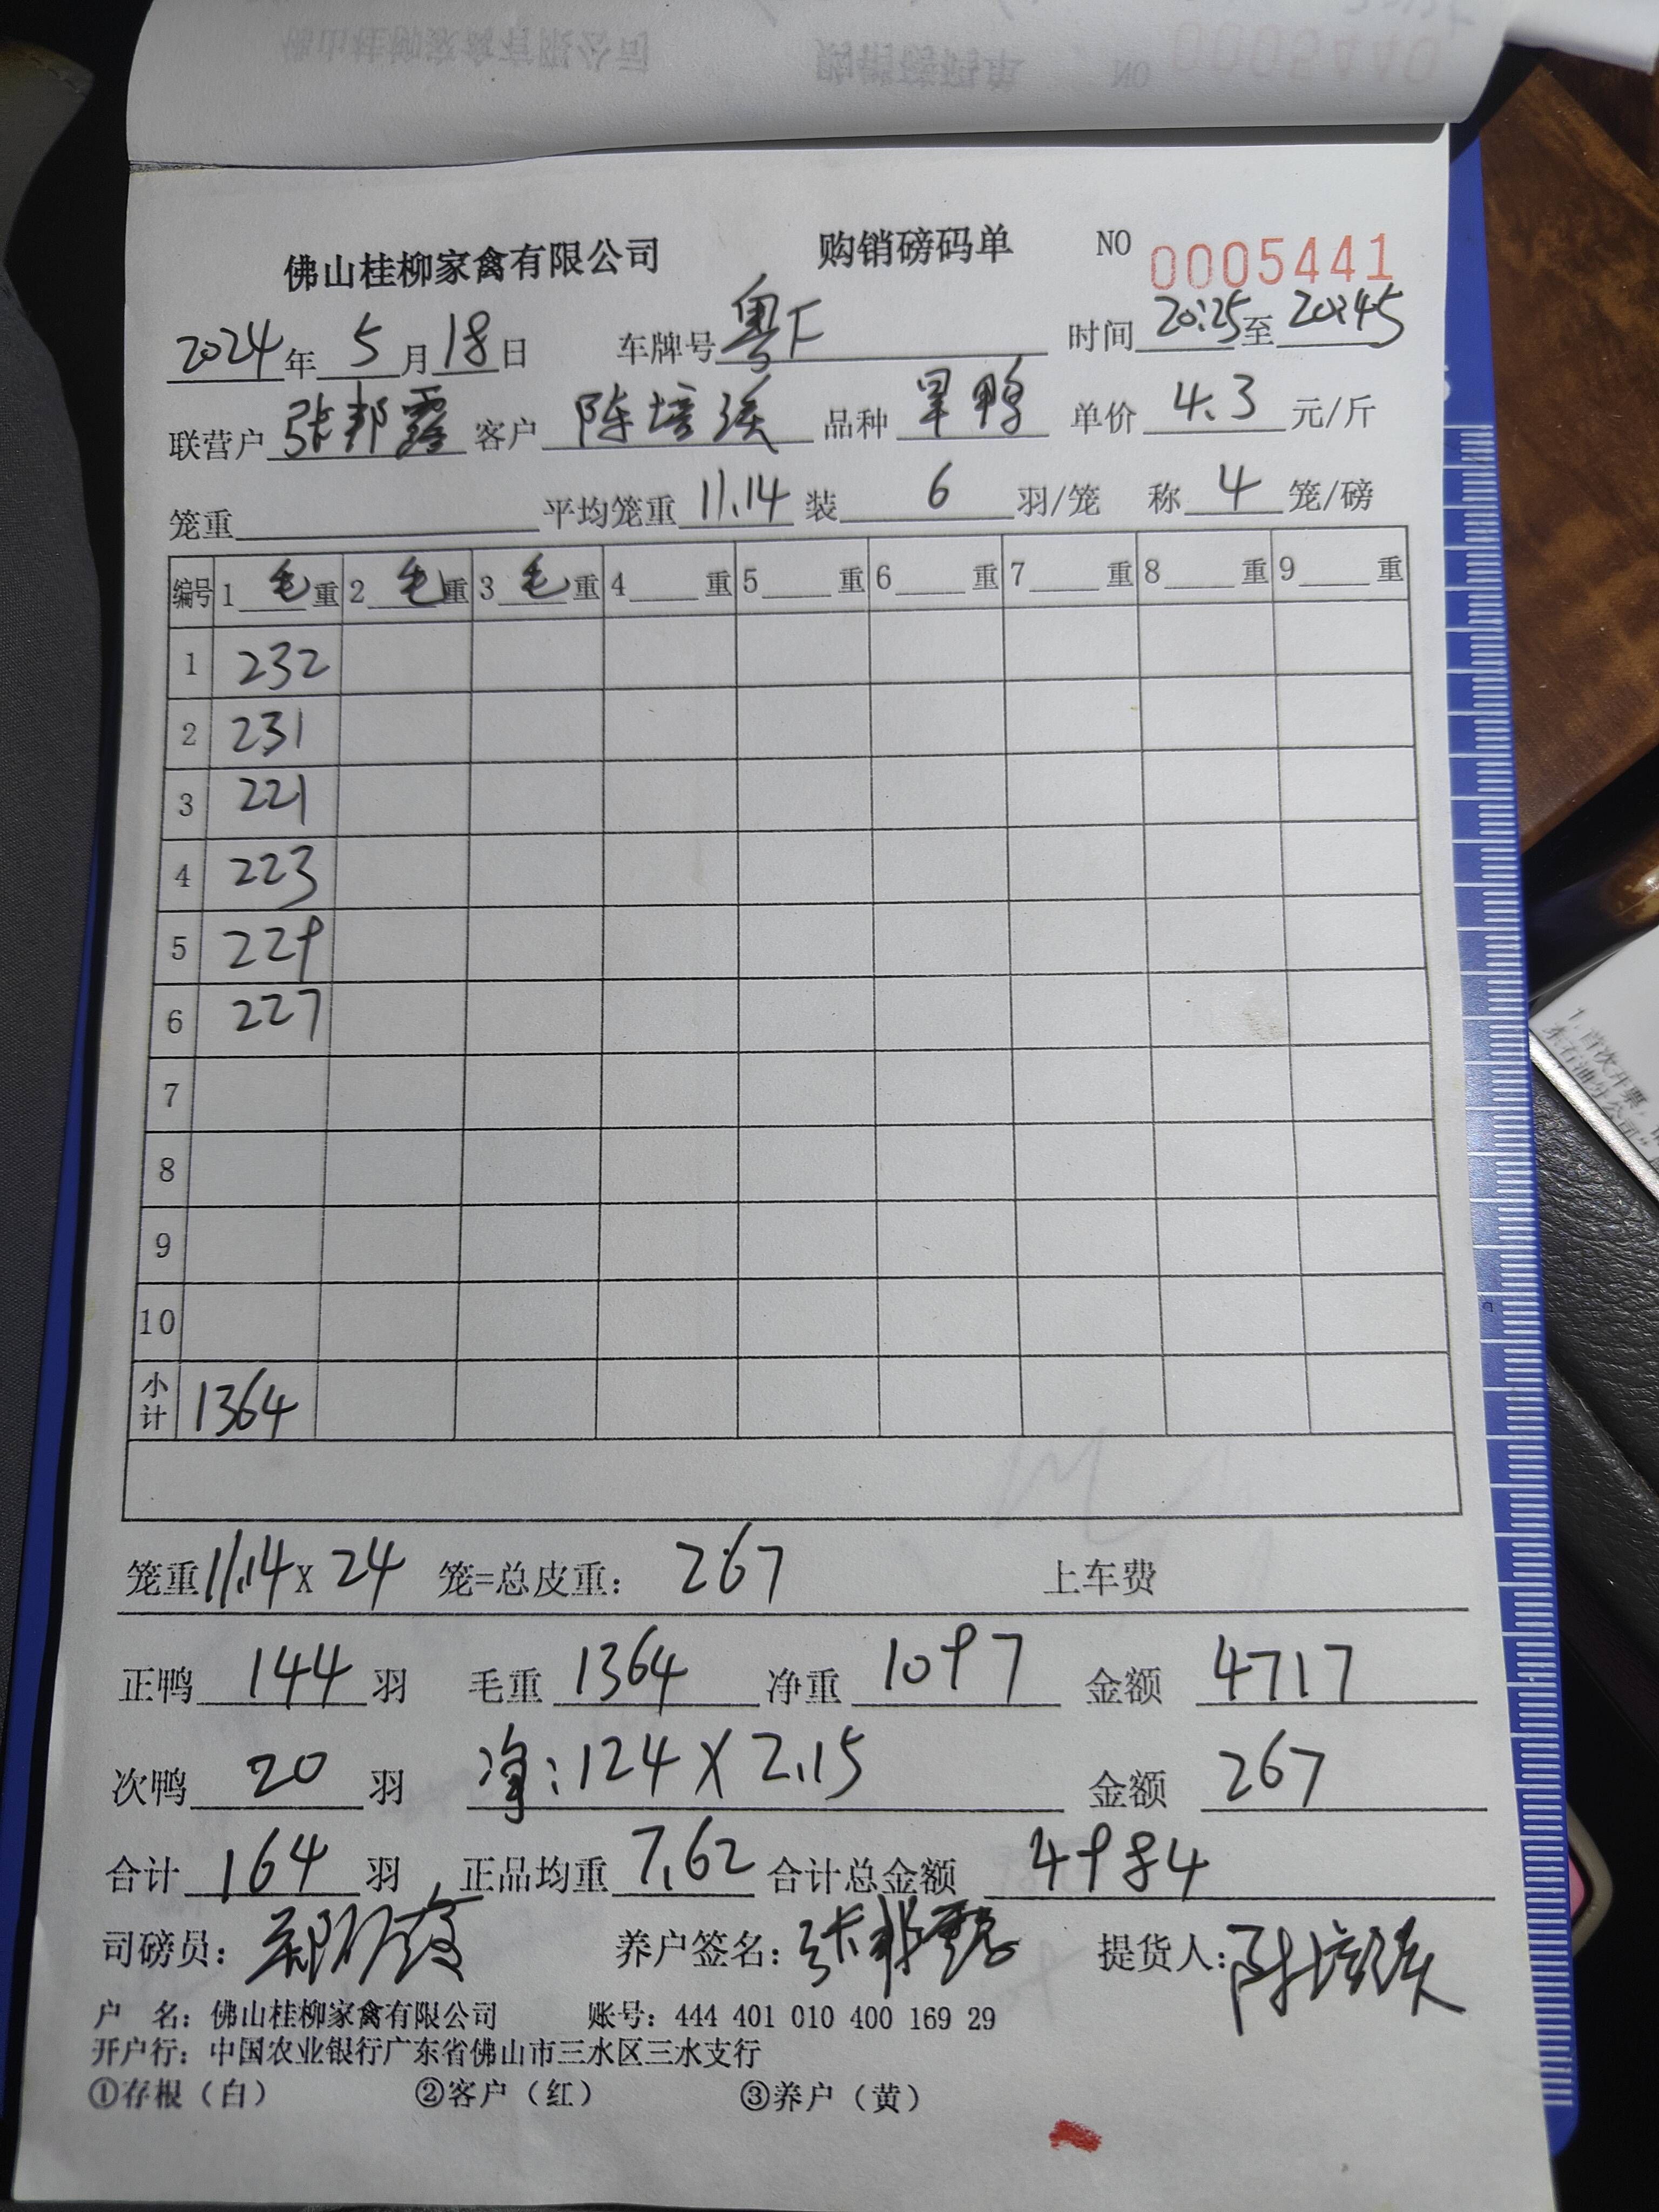 佛山桂柳家禽有限公司 购销磅码单 NO 0005441
2024年5月18日 车牌号粤F 时间20:25至20:45
联营户张邦露 客户陈培溪 品种旱鸭 单价4.3元/斤
笼重 平均笼重11.14装6羽/笼 称4笼/磅
编号 1毛重 2毛重 3毛重 4重 5重 6重 7重 8重 9重
1 232
2 231
3 221
4 223
5 229
6 227
7
8
9
10
小计 1364
笼重11.14X24笼=总皮重：267 上车费
正鸭144羽 毛重1364净重1097 金额4717
次鸭20羽 净：124X2.15 金额267
合计164羽 正品均重7.62合计总金额4984
司磅员： 养户签名：张邦露 提货人：陈培溪
户 名：佛山桂柳家禽有限公司 账号：444 401 010 400 169 29
开户行：中国农业银行广东省佛山市三水区三水支行
①存根（白） ②客户（红） ③养户（黄）